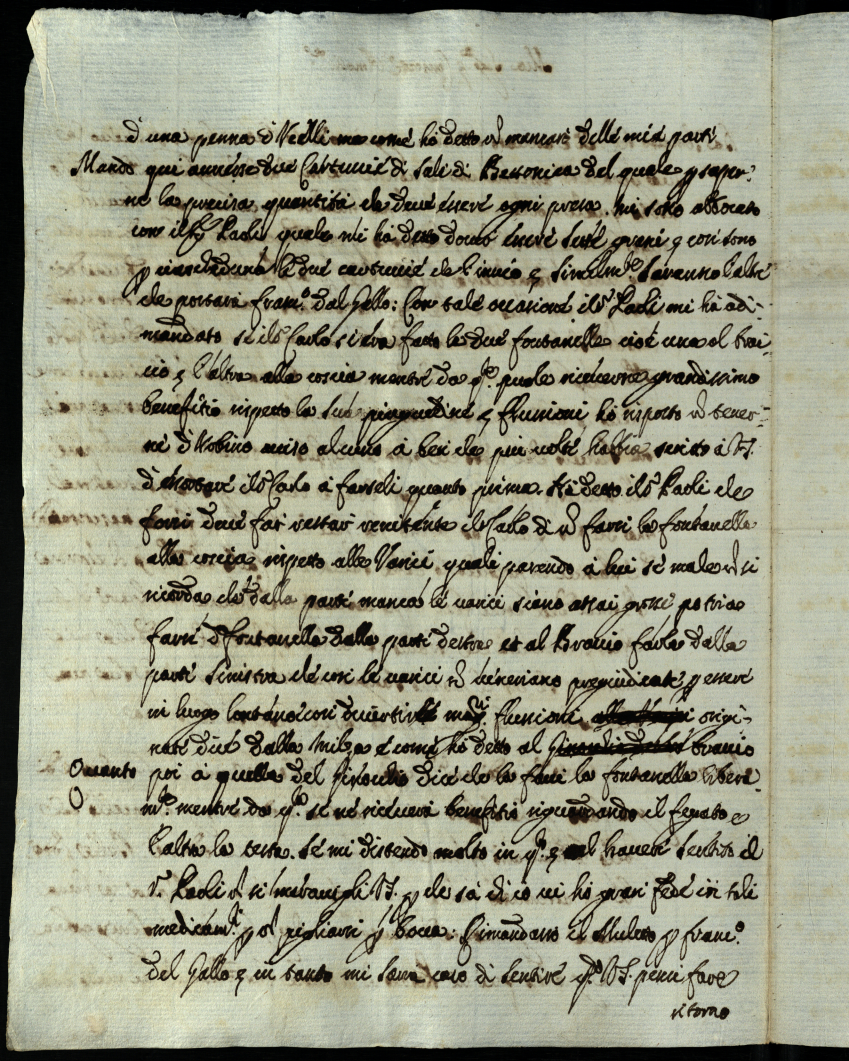 d una penna d Nedli ma come ho detto n mancarò delle mie parti
Mando qui annesse due Cartuccie di Sale di Bettonica del quale p saper
ne la precisa quantità che deve essere ogni presa, mi sono abbocato
con il Sr Paoli quale mi ha detto dover essere sette grani e così sono
p ciascheduna le due cartuccie che l'invio e similmte saranno l'altre
che portarà Franco dal Gallo: Con tale occasione il Sr Paoli mi ha adi-
mandato se il Sr Carlo si era fatto le due fontanelle cioè una al brac-
cio e l'altra alla coscia mentre da qste puole ricevere grandissimo
benefitio rispetto la sua pinguedine e flussioni ho risposto n tener-
ne d Urbino aviso alcuno a ben che più volte habbia scritto a VS.
d'esortare il Sr Carlo a farseli quanto prima. Ha detto il Sr Paoli che
forsi deve far restar renitente il Sr Carlo di n farsi la fontanella
alla coscia rispetto alle Varici quali parendo a lui se male n si
ricorda che dalla parte manca le varici siano assai grosse potria
farsi d fontanella dalla parte destra et al Braccio farla dalla
parte sinistra che così le varici n veneriano pregiudicate p essere
in luogo lontano così divertir le flussioni origi-
nate due dalla milza e come ho detto al braccio
Quanto poi a quella del dice che la facci la fontanella libera-
mte mentre da qsta se ne riceverà benefitio riguardando il fegato e
l'altra la testa. Se mi distendo molto in qsto e nel haver sentito il
Sr Paoli n si meravigli VS. p che sa di io ci ho gran fede in tali
medicamti p n pigliarsi p bocca: Rimandarò il Muletto p Franco
del Gallo e in tanto mi sarà caro di sentire qto VS. pensi fare
ritorno